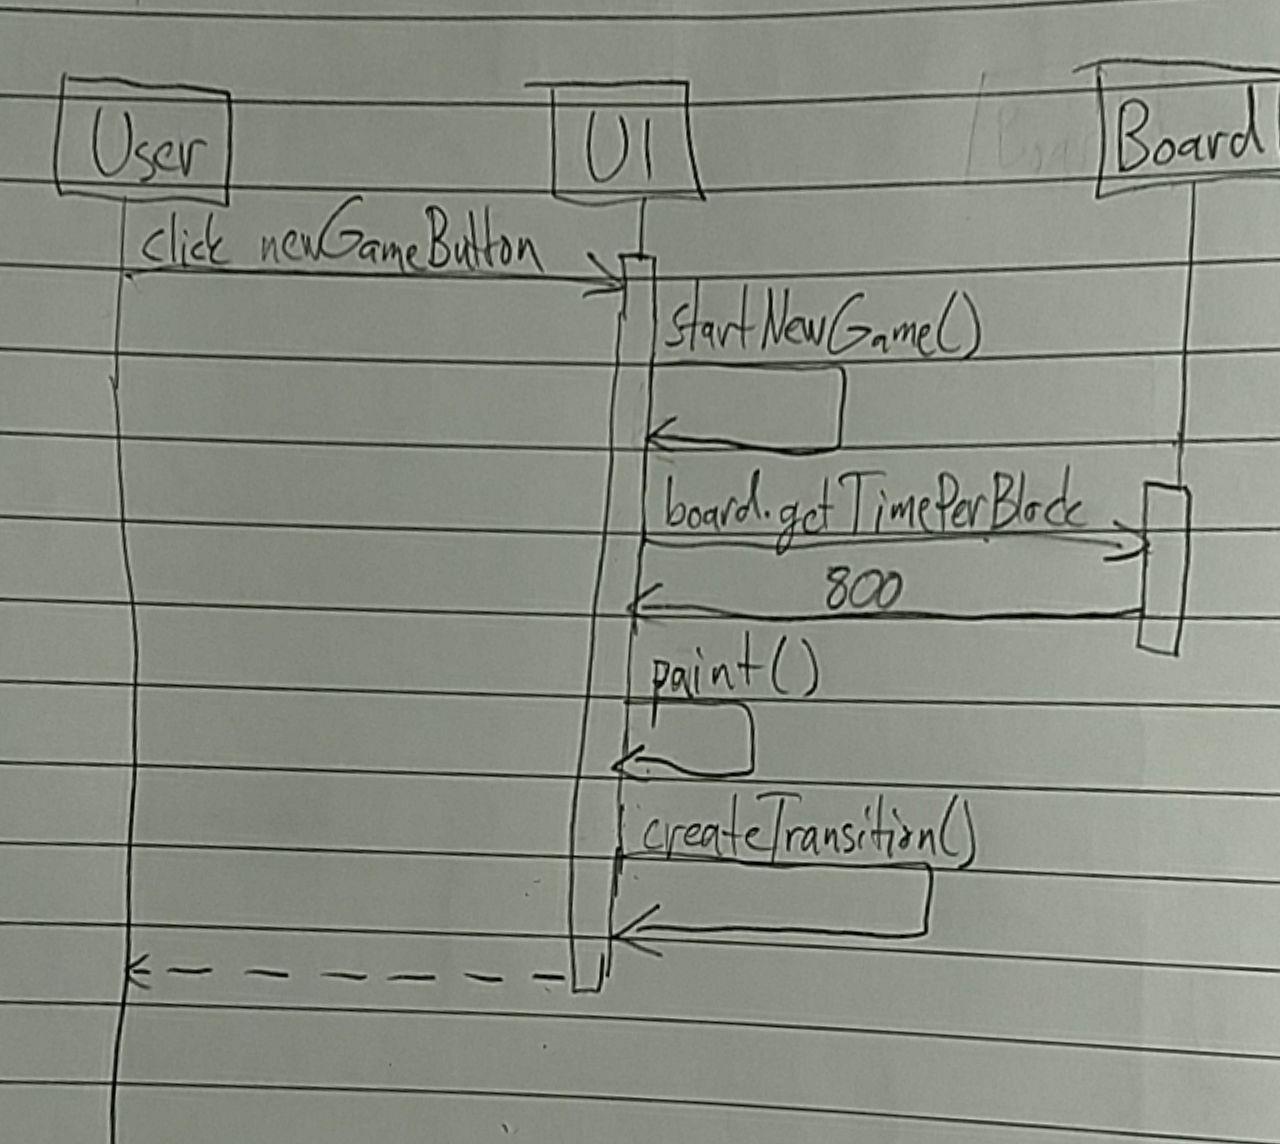 User
UI
Board
click newGameButton
startNewGame()
board.getTimePerBlock
800
paint()
createTransition()